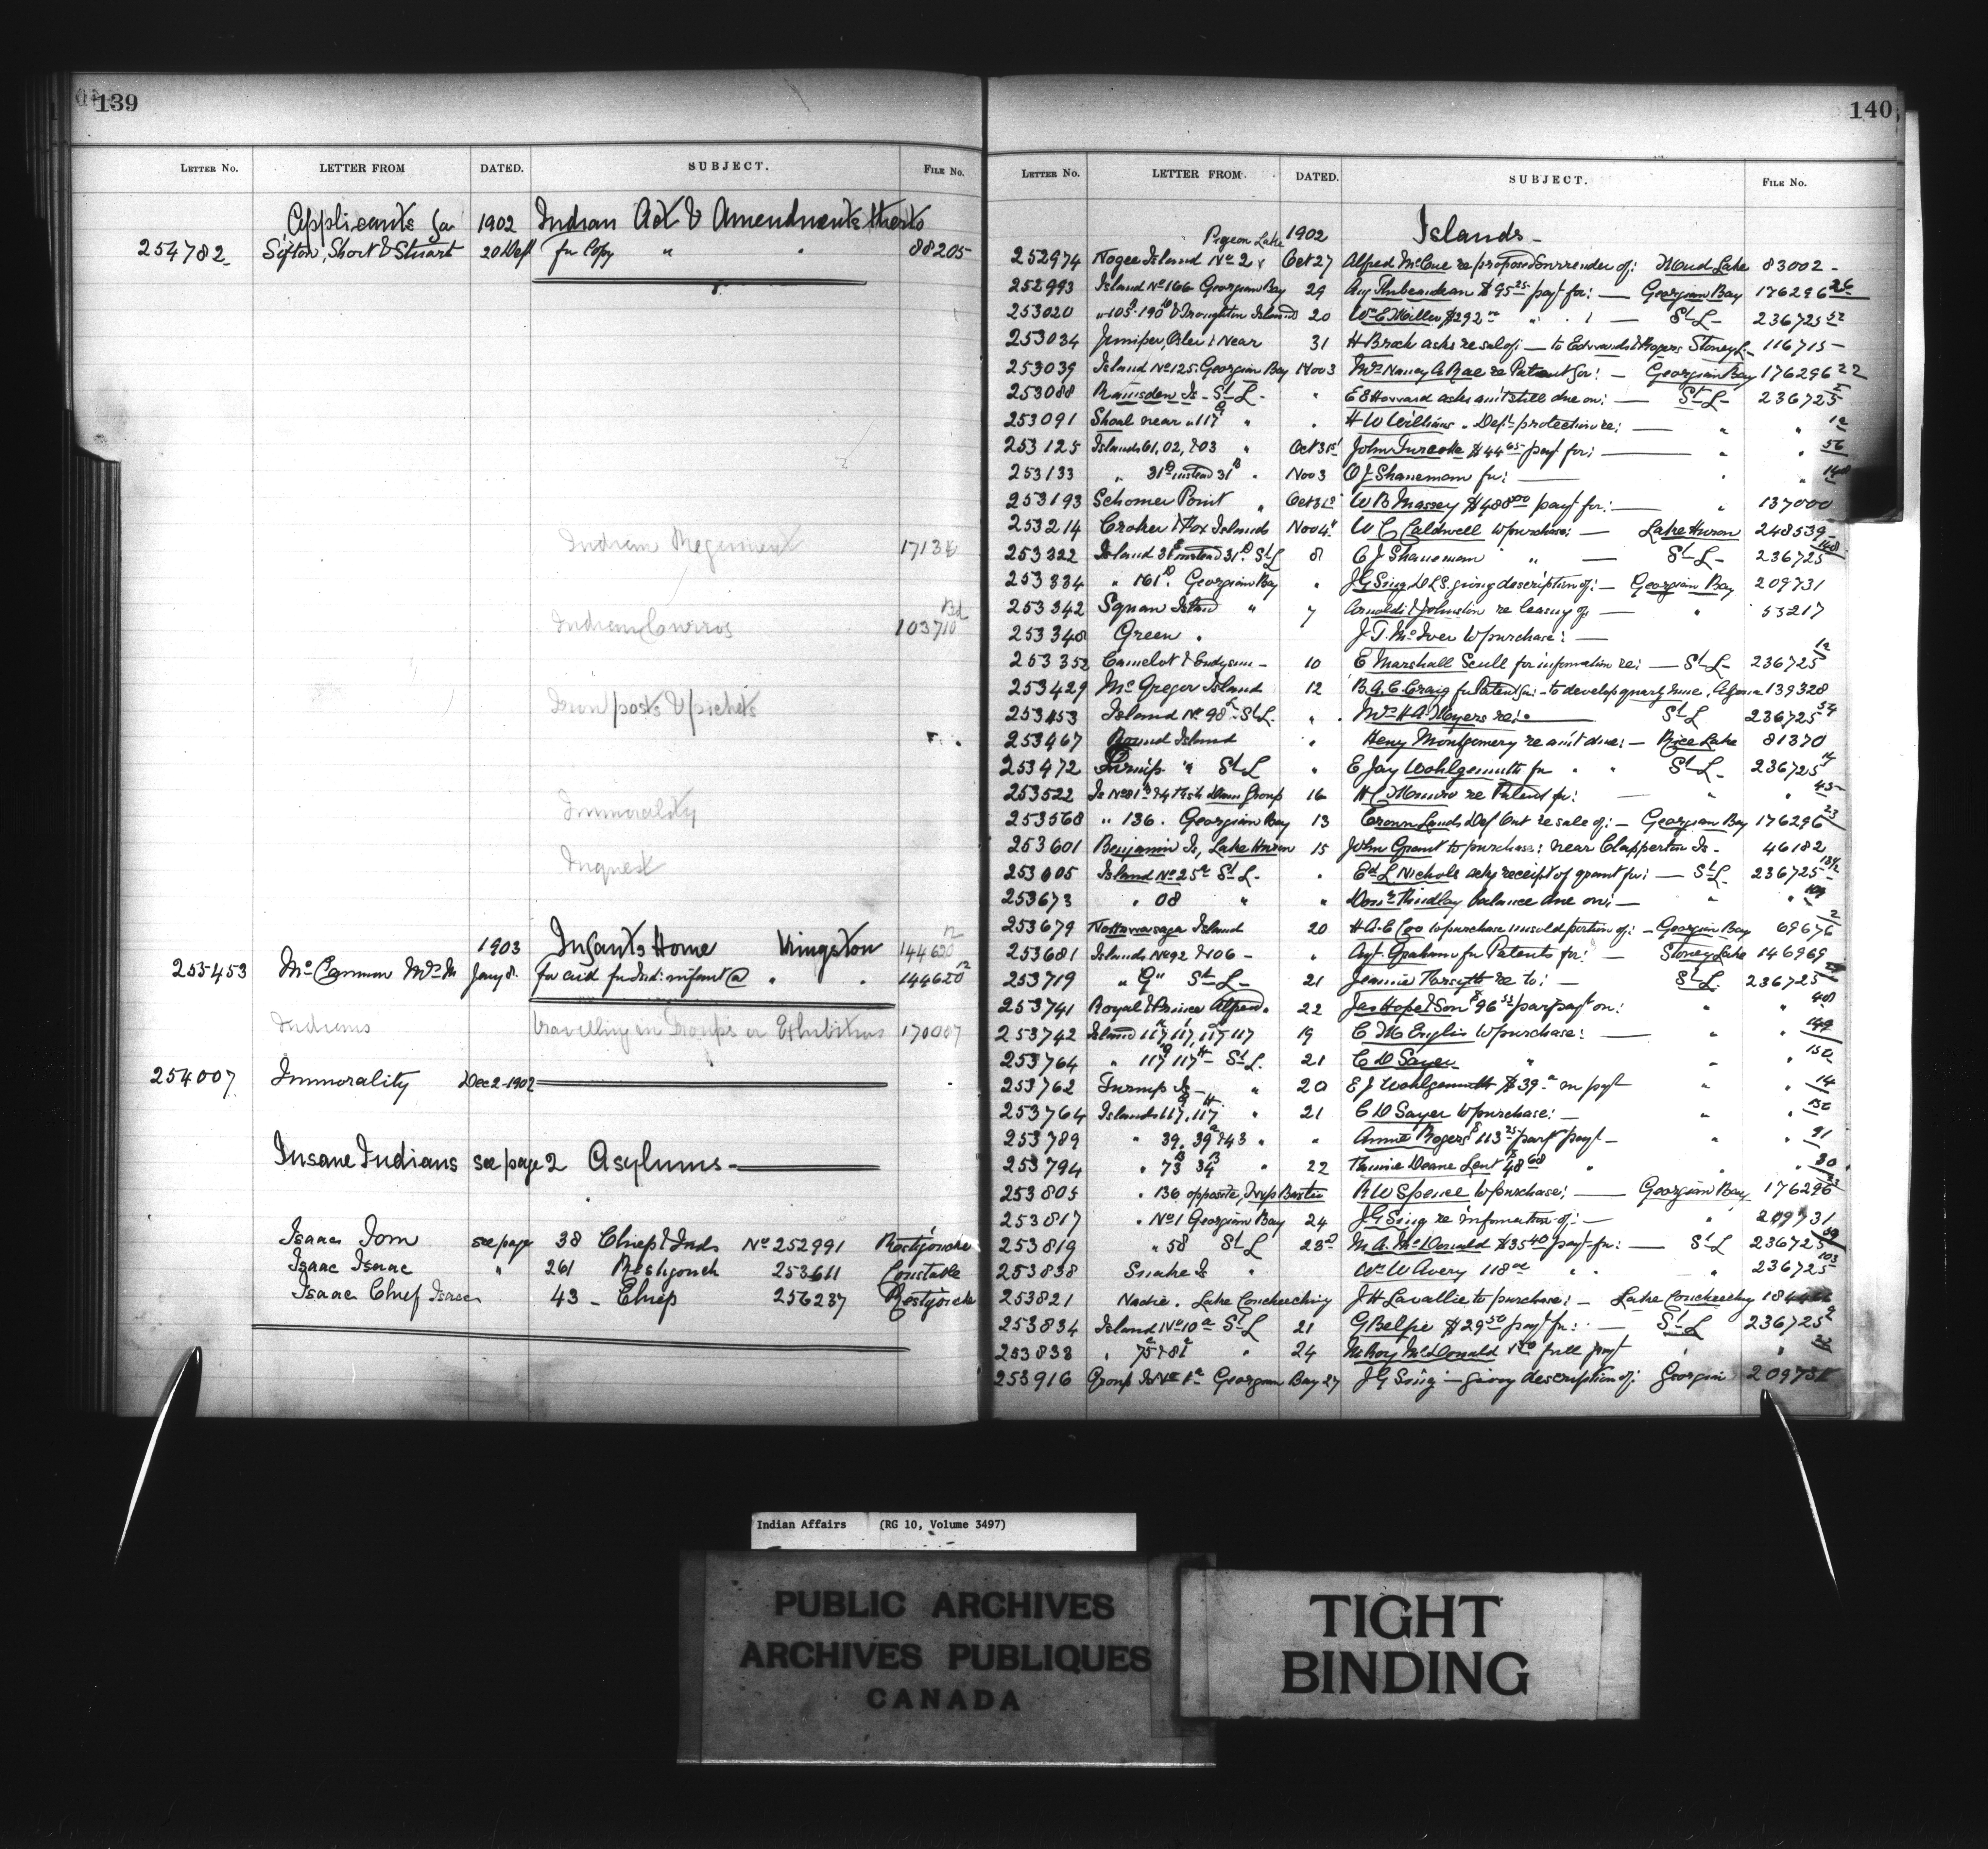 139
LETTER No. LETTER FROM DATED. SUBJECT. FILE No.
Applicants for 1902 Indian Act & Amendments thereto
254782 Sifton, Short & Stuart 20 Dec for Copy " " 88205
Indian Regiment 17131
Indian Curios 103710
Iron posts & pickets
Immorality
Inquest
1903 Infants Home Kingston 144620
255453 McCammon Mrs M Jany 8 for aid for Ind: infant @ " " 144620 12
Indians travelling in Groups or Exhibitions 170007
254007 Immorality Dec 2-1902
Insane Indians see page 2 Asylums
Isaac Tom see page 38 Chief & Inds No 252991 Restigouche
Isaac Isaac " 261 Restigouch 253611 Constable
Isaac Chief Isaac 43 - Chief 256237 Restigouche
140
LETTER No. LETTER FROM. DATED. SUBJECT. FILE No.
Pigeon Lake 1902 Islands
252974 Nogee Island No 2 Oct 27 Alfred McCue re proposed surrender of: Mud Lake 83002
252993 Island No 166 Georgian Bay 29 Aug Thibeaudeau $95 25 payt for: Georgian Bay 176296 26
253020 20 $292 St L 236725 52
253034 Juniper, Otter & Near 31 H Brock asks re sale of: to Edwards & Rogers Stoney L. 116715
253039 Island No 125 Georgian Bay Nov 3 Mrs Nancy A Rae re Patent for: Georgian Bay 176296 22
253088 Ramsden Is - St L. " E E Horward asks am't still due on: St L 236725
253091 Shoal near " 117 " " H W Williams " Dept protection re: " " 12
253125 Islands 61, 62, & 63 " Oct 31st John Turcotte $44 65 payt for: " " 56
253133 " 31 D instead 31 B " Nov 3 O J Shaneman for: " " 148
253193 Schomer Point " Oct 31st W B Massey $488 00 payt for: " 137000
253214 Croker & Fox Islands Nov 4 W C Caldwell to purchase: Lake Huron 248539
253322 Island 31 instead 31 D St L 8 O J Shaneman " St L 236725 148
253334 " 161 D. Georgian Bay " J G Sing D L S. giving description of: Georgian Bay 209731
253342 Squaw Island " 7 Arnoldi & Johnston re leasing of " 53217
253348 Green " J. T. McIver to purchase:
253352 Camelot & Endymion 10 E Marshall Scull for information re: St L 236725 12
253429 McGregor Island 12 B. A. C. Craig for Patent for: to develop quartz mine, Algoma 139328
253453 Island No 98 St L. " Mrs H A Moyers re: St L 236725 54
253467 Round Island " Heny Montgomery re am't due: Rice Lake 81370
253472 Turnip " St L " E Jay Wohlgemuth for " " St L 236725 14
253522 16 H C Munro re Patent for: " " 45
253568 " 136. Georgian Bay 13 Crown Lands Dep Ont re sale of: Georgian Bay 176296 23
253601 Benjamin Is, Lake Huron 15 John Grant to purchase: near Clapperton Is. 46182
253605 Island No 25 a St L. " Ed L Nichols acks receipt of grant for: St L 236725
253673 " 68 " " balance due on: " " 104
253679 Nottawasaga Island 20 H A C Coo to purchase unsold portion of: Georgian Bay 69676 2
253681 Islands No 92 & 106 " Agt. Graham for Patents for: Stoney Lake 146969
253719 " 9 " St L 21 Jennie Forsyth re to: St L. 236725
253741 Royal & Prince Alfred. 22 Jas Hope & Son $96 52 part payt on: " " 48
253742 Island 117, 117, 117, 117 19 C M Englis to purchase: " " 149
253764 " 117 G 117 H St L. 21 C D Sayer " " " 150
253762 Turnip Is " 20 E J Wohlgemuth $39 " in payt " " 14
253764 Islands 117, 117 " 21 C D Sayer to purchase: " " 150
253789 " 39, 39 a & 43 " " Annie Rogers $113 25 part payt " " 91
253794 " 73 B 34 B " 22 Deane Lent $48 68 " " " 30
253805 " 136 opposite, Twp Baxter R W Spence to purchase: Georgian Bay 176296 23
253817 " No 1 Georgian Bay 24 J G Sing re information of: " 209731
253819 " 58 St L 23 M. A. McDonald $35 40 payt for: St L 236725
253838 Snake Is " Wm W Avery 118 " " " 236725 103
253821 Nadie. Lake Couchiching J H Lavallie to purchase: Lake Couchiching
253834 Island No 10 a St L 21 G Belfie $29 50 payt for: St L 236725 9
253838 " 75 & 81 " 24 McDonald full payt " "
253916 Group Is No 1 a Georgian Bay 27 J G Sing giving description of: Georgian 209731
Indian Affairs (RG 10, Volume 3497)
PUBLIC ARCHIVES
ARCHIVES PUBLIQUES
CANADA
TIGHT
BINDING